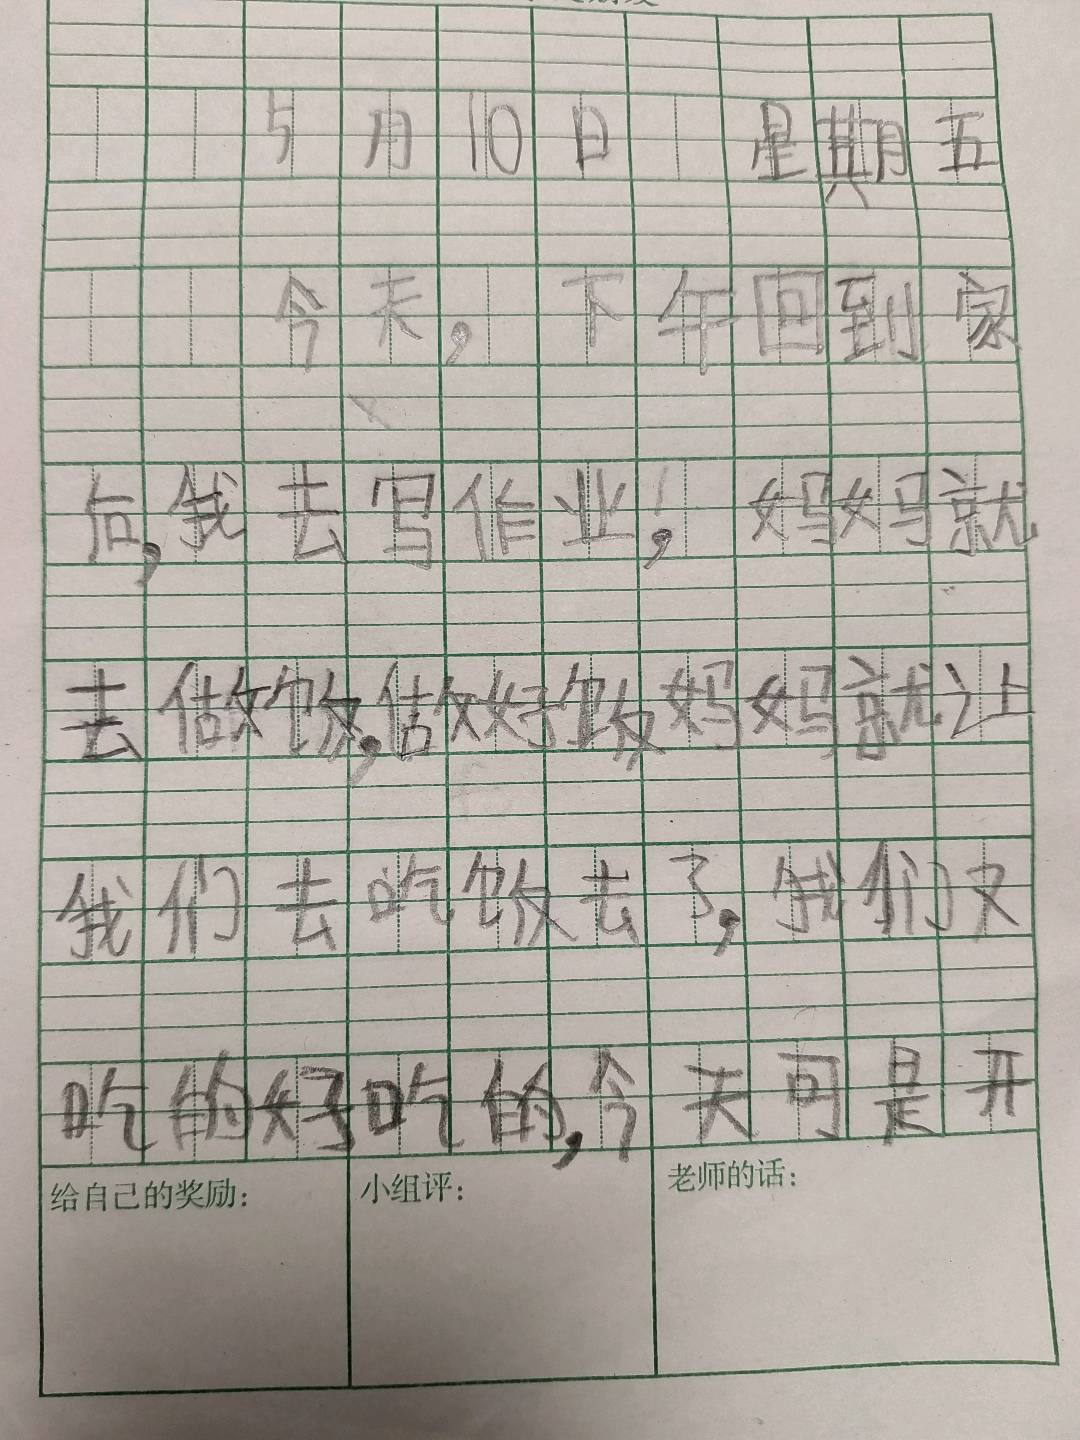 5月10日 星期五
今天,下午回到家
后,我去写作业,妈妈就
去做饭,做好饭妈妈就让
我们去吃饭去了,我们又
吃的好吃的,今天可是开
给自己的奖励: 小组评: 老师的话: